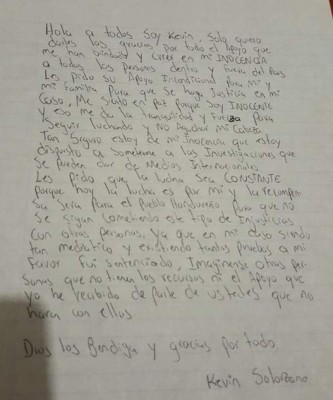 Hola a todos Soy Kevin, Solo quiero
darles las gracias por todo el Apoyo que
me han brindado y creer en mi INOCENCIA
a todas las personas dentro y fuera del Pais
Les pido su Apoyo Incondicional para mi y
mi Familia para que se haga Justicia en mi
Caso, Me siento en paz porque Soy INOCENTE
y eso me da la tranquilidad y Fuerza para
Seguir luchando y NO Agachar mi Cabeza
Tan Seguro estoy de mi inocencia que estoy
dispuesto a Someterme a las Investigaciones que
Se puedan dar de Medios Internacionales
Les pido que la lucha sea CONSTANTE
porque hoy la lucha es por mi y la recompen
Sa Sera para el pueblo Hondureño para que no
Se sigan cometiendo este tipo de Injusticias
Con otras personas. Ya que en mi caso siendo
tan mediatico y existiendo tantas pruebas a mi
Favor fui sentenciado, Imaginense otras per-
Sonas que no tienen los recursos ni el Apoyo que
yo he recibido de parte de ustedes que no
haran con ellos
Dios los Bendiga y gracias por todo.
Kevin Solorzano